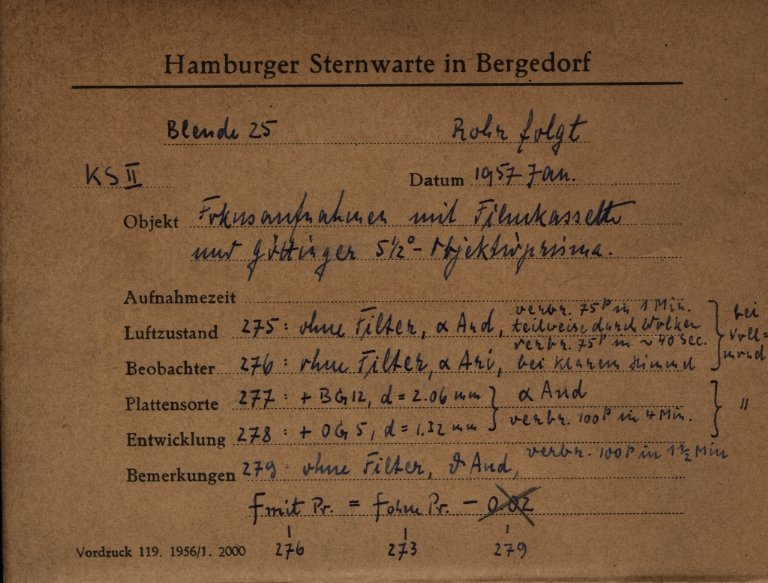 Hamburger Sternwarte in Bergedorf
Blende 25 Rohr folgt
KS II Datum 1957 Jan.
Objekt Fokusaufnahmen mit Filmkassette
und Göttinger 5½°-Objektivprisma.
Aufnahmezeit
verbr. 75P in 1 Min.
Luftzustand 275: ohne Filter, α And, teilweise durch Wolken
verbr. 75P in ~ 40 Sec.
Beobachter 276: ohne Filter, α Ari, bei klarem Himmel } bei Vollmond
Plattensorte 277: + BG 12, d = 2.06 mm } α And
verbr. 100P in 4 Min. } "
Entwicklung 278: + OG 5, d = 1.32 mm
verbr. 100P in 1½ Min
Bemerkungen 279: ohne Filter, ϑ And,
f mit Pr. = f ohne Pr. - 0.02
276 273 279
Vordruck 119. 1956/1. 2000